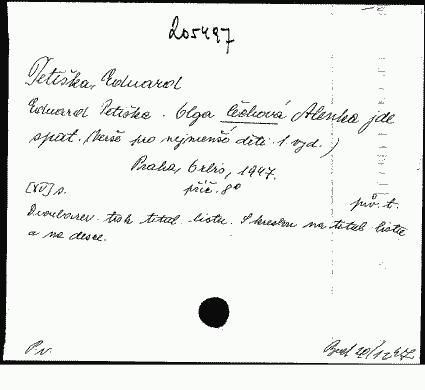 205497
Petiška, Eduard
Eduard Petiška. Olga Čechová Alenka jde
spat. (Verše pro nejmenší děti. 1. vyd.)
Praha, Orbis, 1947.
[XV] s. příč. 8° pův. t.
Dvoubarev. tisk titul. listu. S kresbou na titul. listě
a na desce.
P.v.